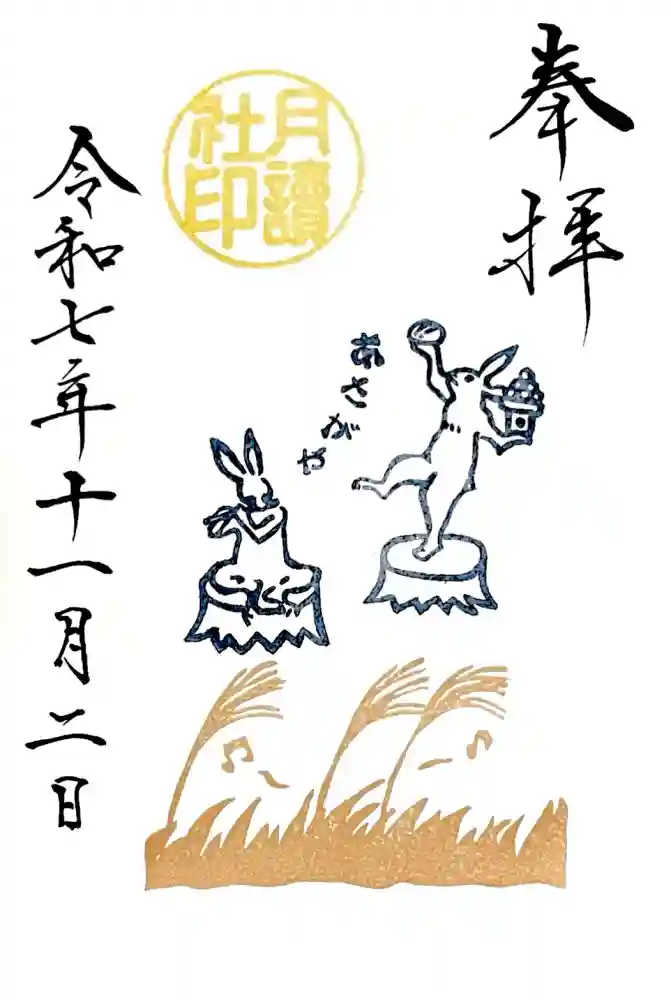 奉拝
月讀
社印
あさがや
令和七年十一月二日